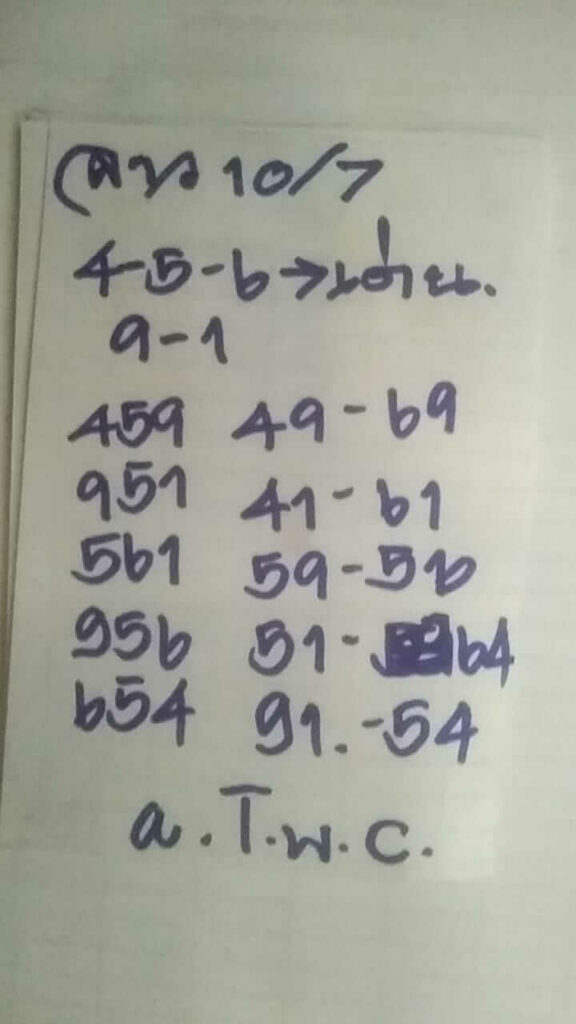 ลาว 10/7
4-5-6→เด่น.
9-1
459 49-69
951 41-61
561 59-56
956 51-64
654 91.-54
a.T.พ.c.